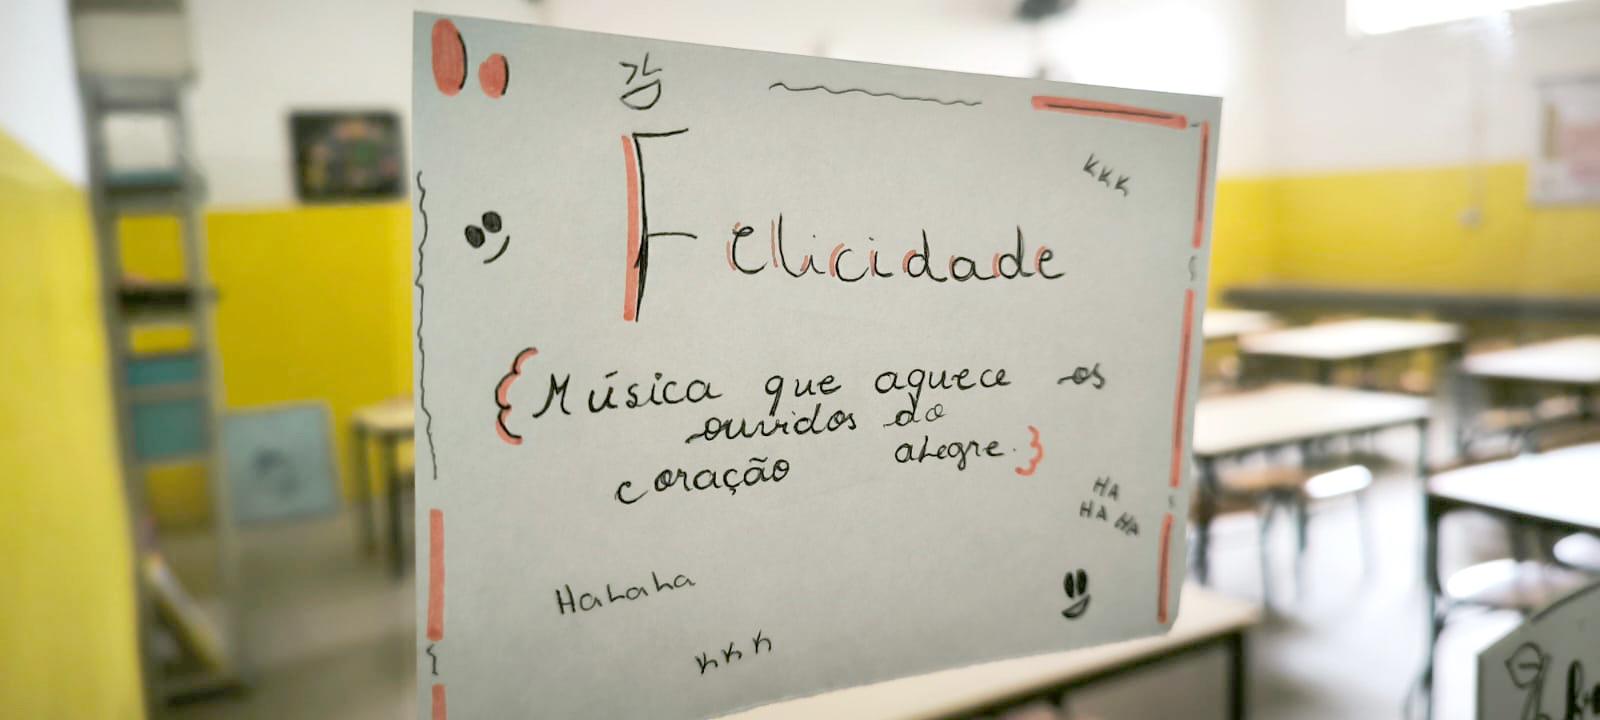 KKK
Felicidade
{Música que aquece os
ouvidos do
coração alegre.}
HA
HA HA
Hahaha
KKK